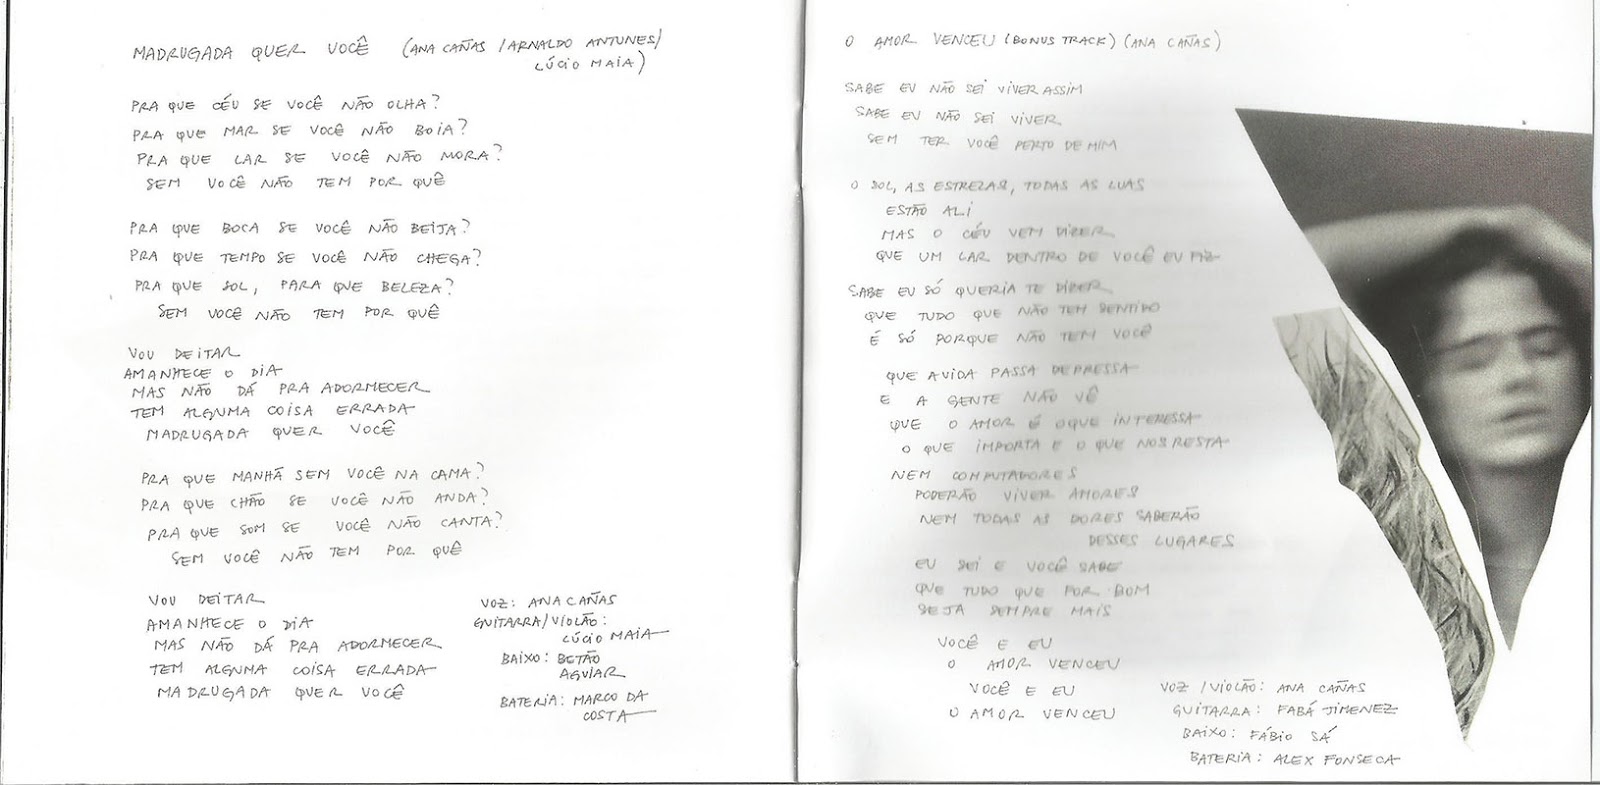 MADRUGADA QUER VOCÊ (ANA CAÑAS / ARNALDO ANTUNES /
LÚCIO MAIA)
PRA QUE CÉU SE VOCÊ NÃO OLHA?
PRA QUE MAR SE VOCÊ NÃO BOIA?
PRA QUE LAR SE VOCÊ NÃO MORA?
SEM VOCÊ NÃO TEM POR QUÊ
PRA QUE BOCA SE VOCÊ NÃO BEIJA?
PRA QUE TEMPO SE VOCÊ NÃO CHEGA?
PRA QUE SOL, PARA QUE BELEZA?
SEM VOCÊ NÃO TEM POR QUÊ
VOU DEITAR
AMANHECE O DIA
MAS NÃO DÁ PRA ADORMECER
TEM ALGUMA COISA ERRADA
MADRUGADA QUER VOCÊ
PRA QUE MANHÃ SEM VOCÊ NA CAMA?
PRA QUE CHÃO SE VOCÊ NÃO ANDA?
PRA QUE SOM SE VOCÊ NÃO CANTA?
SEM VOCÊ NÃO TEM POR QUÊ
VOU DEITAR
AMANHECE O DIA
MAS NÃO DÁ PRA ADORMECER
TEM ALGUMA COISA ERRADA
MADRUGADA QUER VOCÊ
VOZ: ANA CAÑAS
GUITARRA/VIOLÃO:
LÚCIO MAIA
BAIXO: BETÃO
AGUIAR
BATERIA: MARCO DA
COSTA
O AMOR VENCEU (BONUS TRACK) (ANA CAÑAS)
SABE EU NÃO SEI VIVER ASSIM
SABE EU NÃO SEI VIVER
SEM TER VOCÊ PERTO DE MIM
O SOL, AS ESTRELAS, TODAS AS LUAS
ESTÃO ALI
MAS O CÉU VEM DIZER
QUE UM LAR DENTRO DE VOCÊ EU FIZ
SABE EU SÓ QUERIA TE DIZER
QUE TUDO QUE NÃO TEM SENTIDO
É SÓ PORQUE NÃO TEM VOCÊ
QUE A VIDA PASSA DEPRESSA
E A GENTE NÃO VÊ
QUE O AMOR É O QUE INTERESSA
O QUE IMPORTA E O QUE NOS RESTA
NEM COMPUTADORES
PODERÃO VIVER AMORES
NEM TODAS AS DORES SABERÃO
DESSES LUGARES
EU SEI E VOCÊ SABE
QUE TUDO QUE FOR BOM
SEJA SEMPRE MAIS
VOCÊ E EU
O AMOR VENCEU
VOCÊ E EU
O AMOR VENCEU
VOZ / VIOLÃO: ANA CAÑAS
GUITARRA: FABÁ JIMENEZ
BAIXO: FÁBIO SÁ
BATERIA: ALEX FONSECA